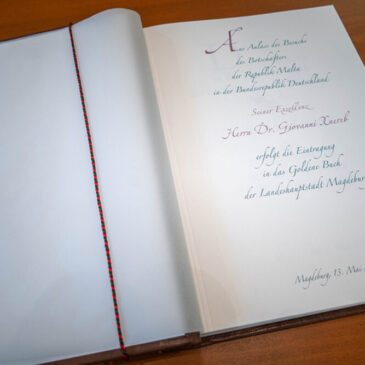 Aus Anlass des Besuchs
des Botschafters
der Republik Malta
in der Bundesrepublik Deutschland
Seiner Exzellenz
Herrn Dr. Giovanni Xuereb
erfolgt die Eintragung
in das Goldene Buch
der Landeshauptstadt Magdeburg
Magdeburg, 13. Mai